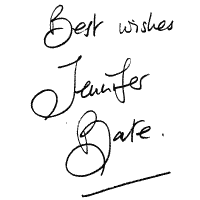 Best wishes
Jennifer
Bate.